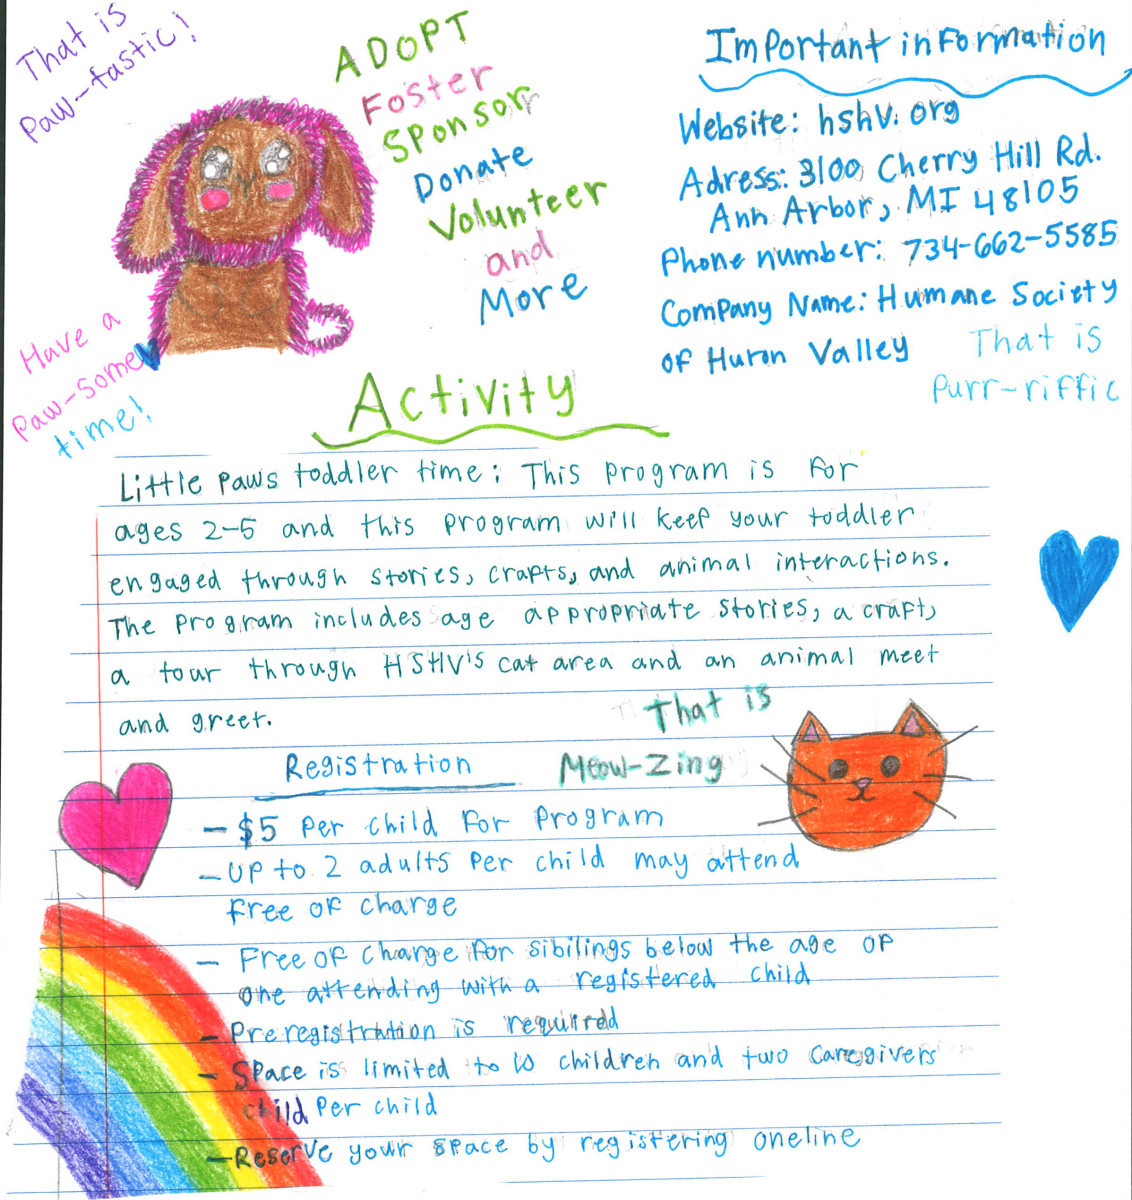 That is
Paw-tastic!
ADOPT
Foster
Sponsor
Donate
Volunteer
and
More
Important information
Website: hshv.org
Adress: 3100 Cherry Hill Rd.
Ann Arbor, MI 48105
Phone number: 734-662-5585
Company Name: Humane Society
of Huron Valley
That is
Purr-riffic
Have a
Paw-some
time!
Activity
Little Paws toddler time: This program is for
ages 2-5 and this program will keep your toddler
engaged through stories, crafts, and animal interactions.
The program includes age appropriate stories, a craft,
a tour through HSHV's cat area and an animal meet
and greet.
That is
Meow-zing
Registration
- $5 per child for program
- Up to 2 adults per child may attend
free of charge
- Free of charge for sibilings below the age of
one attending with a registered child
- Preregistration is required
- Space is limited to 10 children and two caregivers
child per child
- Reserve your space by registering oneline